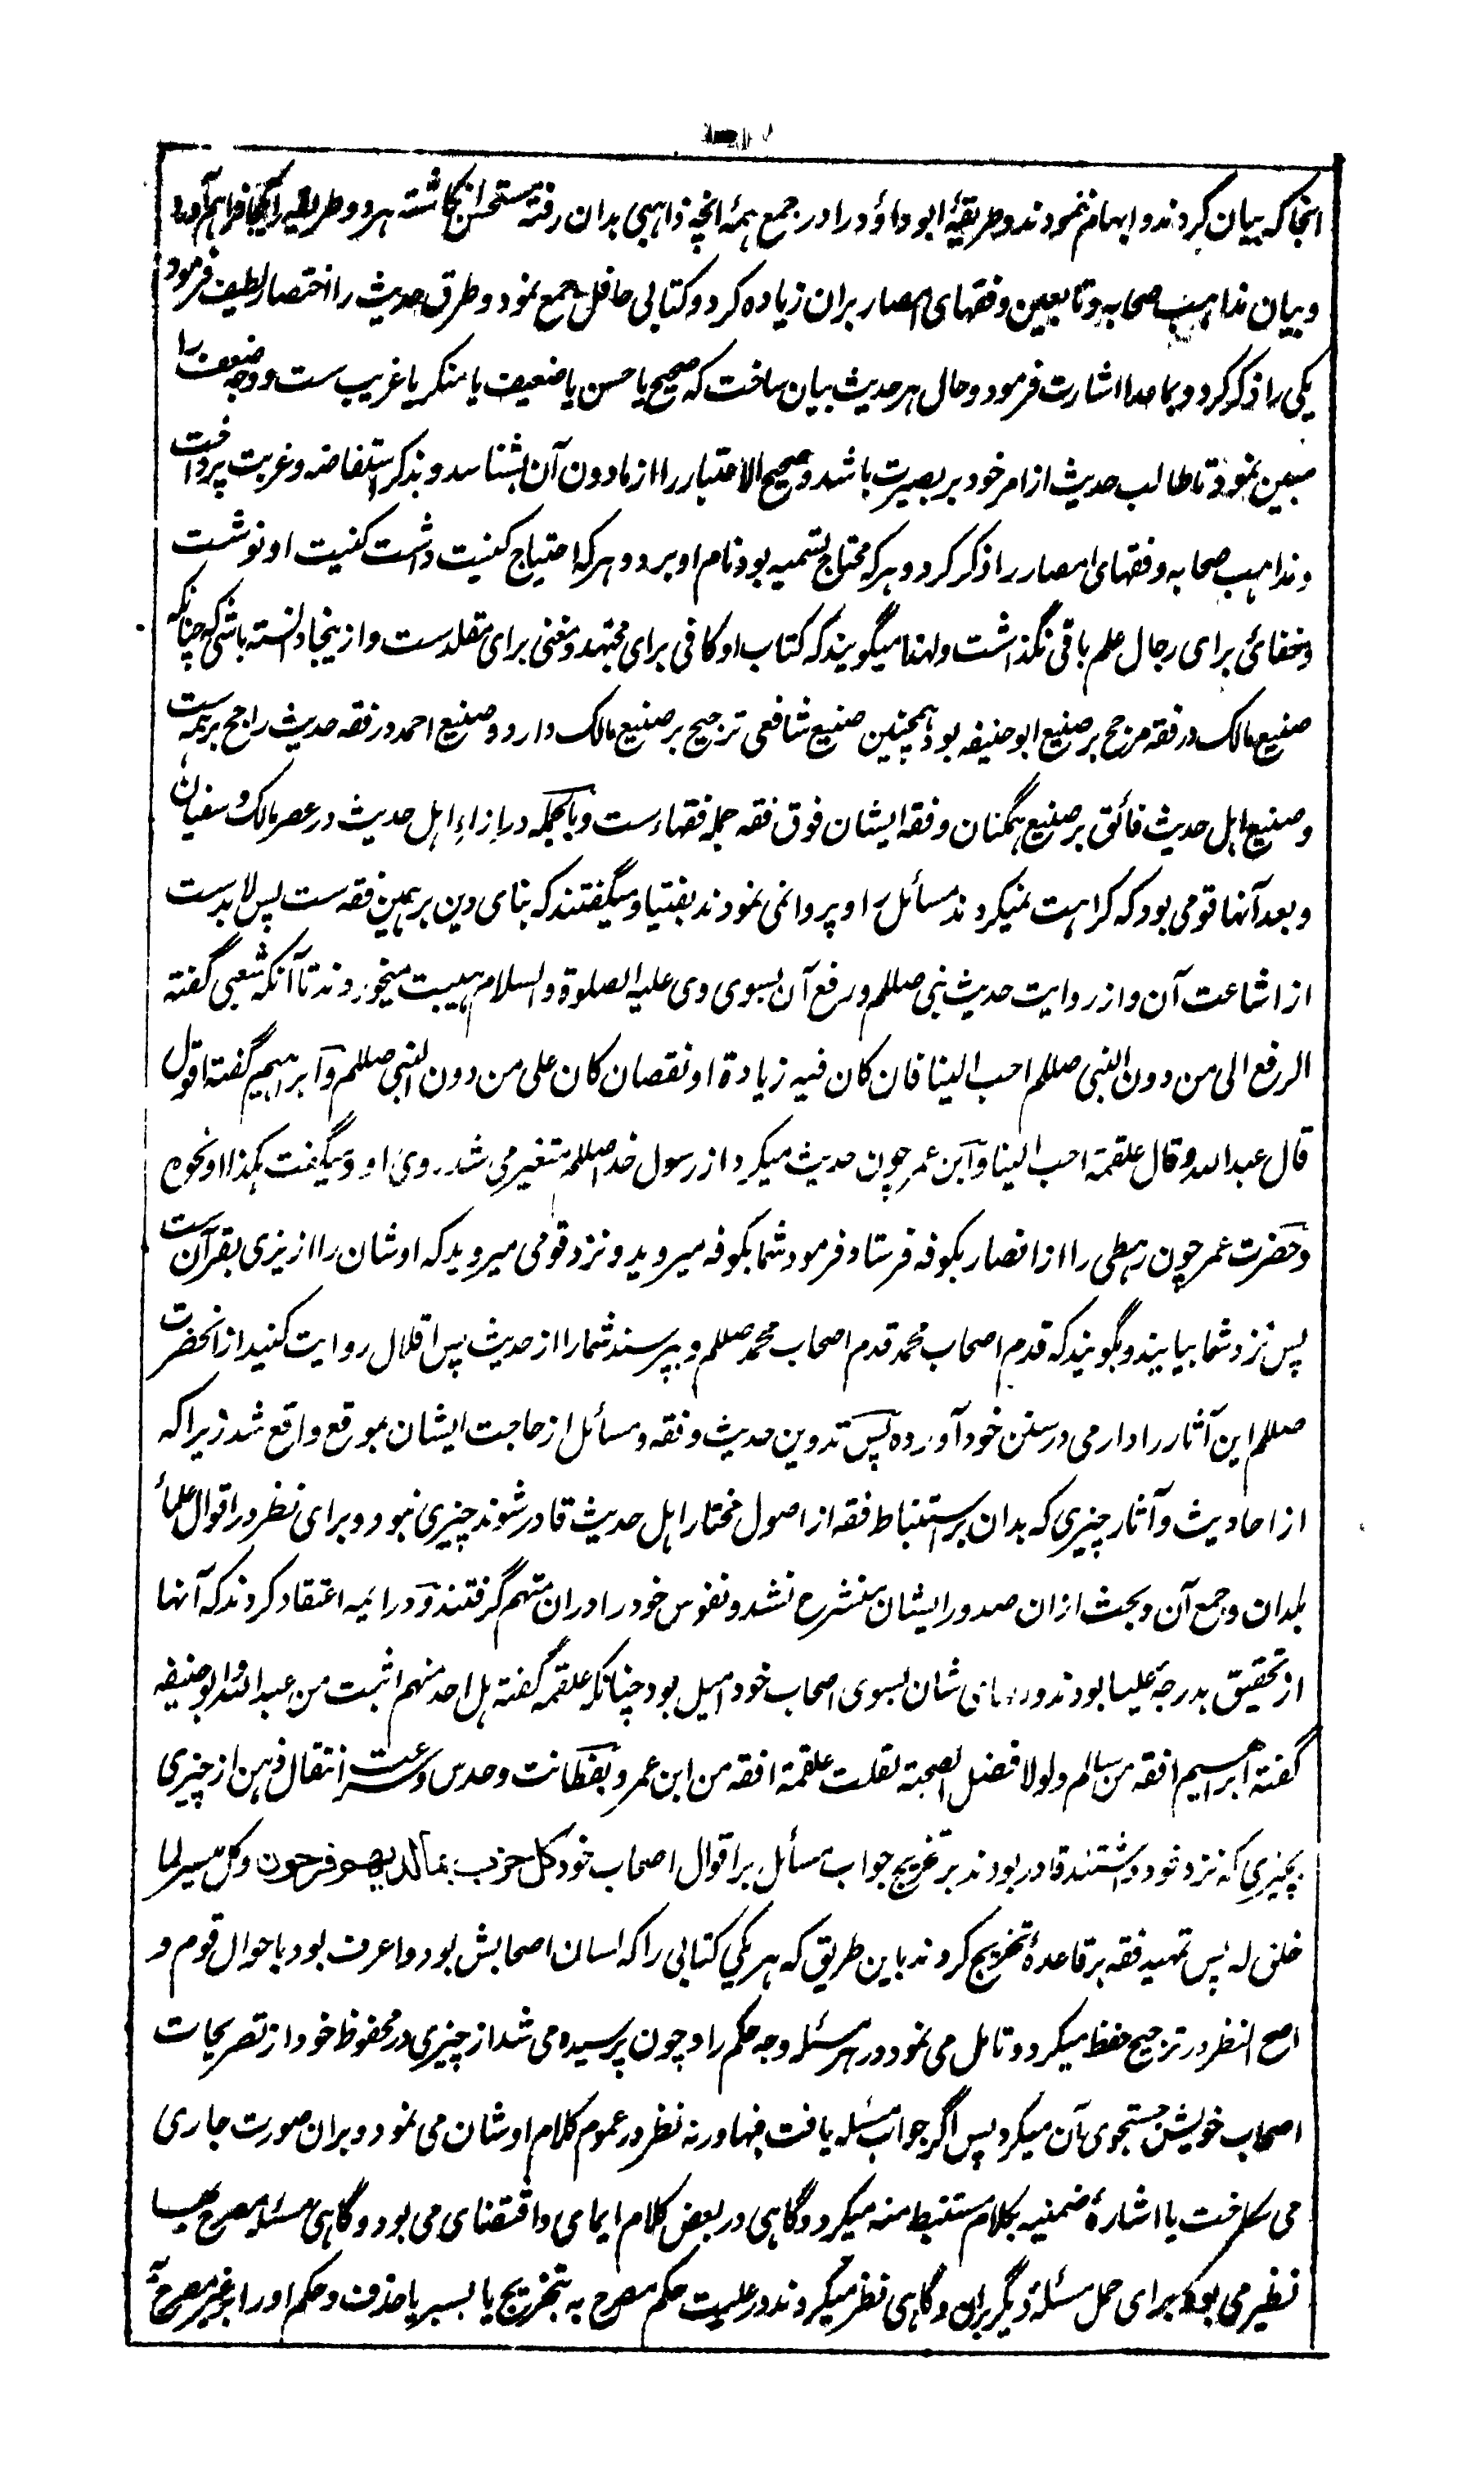 انجا که بیان کردند و ابهام ننمودند و طریقهٔ ابو داؤد را در جمع همه انچه ذاهبی بدان رفته مستحسن انگاشته هر دو طریقه را یکجا فراهم آورد
و بیان مذاهب صحابه و تابعین و فقهای امصار بران زیاده کرد و کتابی حافل جمع نمود و طرق حدیث را اختصار لطیف فرمود
یکی را ذکر کرد و بماعدا اشارت فرمود و حال هر حدیث بیان ساخت که صحیح یا حسن یا ضعیف یا منکر یا غریب ست و وجه ضعف را
مبین نمود تا طالب حدیث از امر خود بر بصیرت باشد و صحیح الاعتبار را از مادون آن بشناسد و بذکر استفاضه و غربت پرداخت
و مذاهب صحابه و فقهای امصار را ذکر کرد و هر که محتاج تسمیه بود نام او برد و هر که احتیاج کنیت داشت کنیت او نوشت
و خفائی برای رجال علم باقی نگذاشت و لهذا میگویند که کتاب او کافی برای مجتهد و مغنی برای مقلد ست و ازینجا دانسته باشی که چنانکه
صنیع مالک در فقه مرجح بر صنیع ابو حنیفه بود همچنین صنیع شافعی ترجیح بر صنیع مالک دارد و صنیع احمد در فقه حدیث راجح بر همه ست
و صنیع اهل حدیث فائق بر صنیع همگنان و فقه ایشان فوق فقه جمله فقهاء ست و بالجمله در ازاء اهل حدیث در عصر مالک و سفیان
و بعد آنها قومی بود که کراهت نمیکردند مسائل را و پروا نمی نمودند بفتیا و میگفتند که بنای دین بر همین فقه ست پس لابد ست
از اشاعت آن و از روایت حدیث نبی صللم و رفع آن بسوی وی علیه الصلوة والسلام هیبت میخوردند تا آنکه شعبی گفته
الرفع الی من دون النبی صللم احب الینا فان کان فیه زیادة او نقصان کان علی من دون النبی صللم و ابراهیم گفته اقول
قال عبد الله و قال علقمة احب الینا و ابن عمر چون حدیث میکرد از رسول خدا صللم متغیر می شد روی او و میگفت هکذا او نحوه
و حضرت عمر چون رهطی را از انصار بکوفه فرستاد فرمود شما بکوفه میروید و نزد قومی میروید که اوشان را ازیزی بقرآن ست
پس نزد شما بیایند و بگویند که قدم اصحاب محمد قدم اصحاب محمد صللم و بپرسند شما را از حدیث پس اقلال روایت کنید از انحضرت
صللم این آثار را دارمی در سنن خود آورده پس تدوین حدیث و فقه و مسائل از حاجت ایشان بموقع واقع شد زیرا که
از احادیث و آثار چیزی که بدان بر استنباط فقه از اصول مختار اهل حدیث قادر شوند چیزی نبود و برای نظر در اقوال علمأ
بلدان و جمع آن و بحث ازان صدور ایشان منشرح نشد و نفوس خود را دران متهم گرفتند و در ایمه اعتقاد کردند که آنها
از تحقیق بدرجهٔ علیا بودند و دلهای شان بسوی اصحاب خود امیل بود چنانکه علقمه گفته هل احد منهم اثبت من عبد الله و ابو حنیفه
گفته ابراهیم افقه من سالم و لولا فضل الصحبة لقلت علقمة افقه من ابن عمر و بفطانت و حدس و سرعت انتقال ذهن از چیزی
بچیزی که نزد خود داشتند قادر بودند بر تخریج جواب مسائل بر اقوال اصحاب خود کل حزب بما لدیهم فرحون و کل میسر لما
خلق له پس تمهید فقه بر قاعدهٔ تخریج کردند باین طریق که هر یکی کتابی را که لسان اصحابش بود و اعرف بود باحوال قوم و
اصح النظر در ترجیح حفظ میکرد و تامل می نمود در هر مسئله وجه حکم را و چون پرسیده می شد از چیزی در محفوظ خود از تصریحات
اصحاب خویش جستجوی آن میکرد پس اگر جواب مسئله یافت فبها ورنه نظر در عموم کلام اوشان می نمود و بران صورت جاری
می ساخت یا اشارهٔ ضمنیه بکلام مستنبط منه میکرد و گاهی در بعض کلام ایمای و اقتضای می بود و گاهی مسئله مصرح بها
نظیر می بود برای حمل مسئلهٔ دیگر بران و گاهی نظر میکردند در علیت حکم مصرح به بتخریج یا بسبر یا حذف و حکم او را بر غیر مصرح به